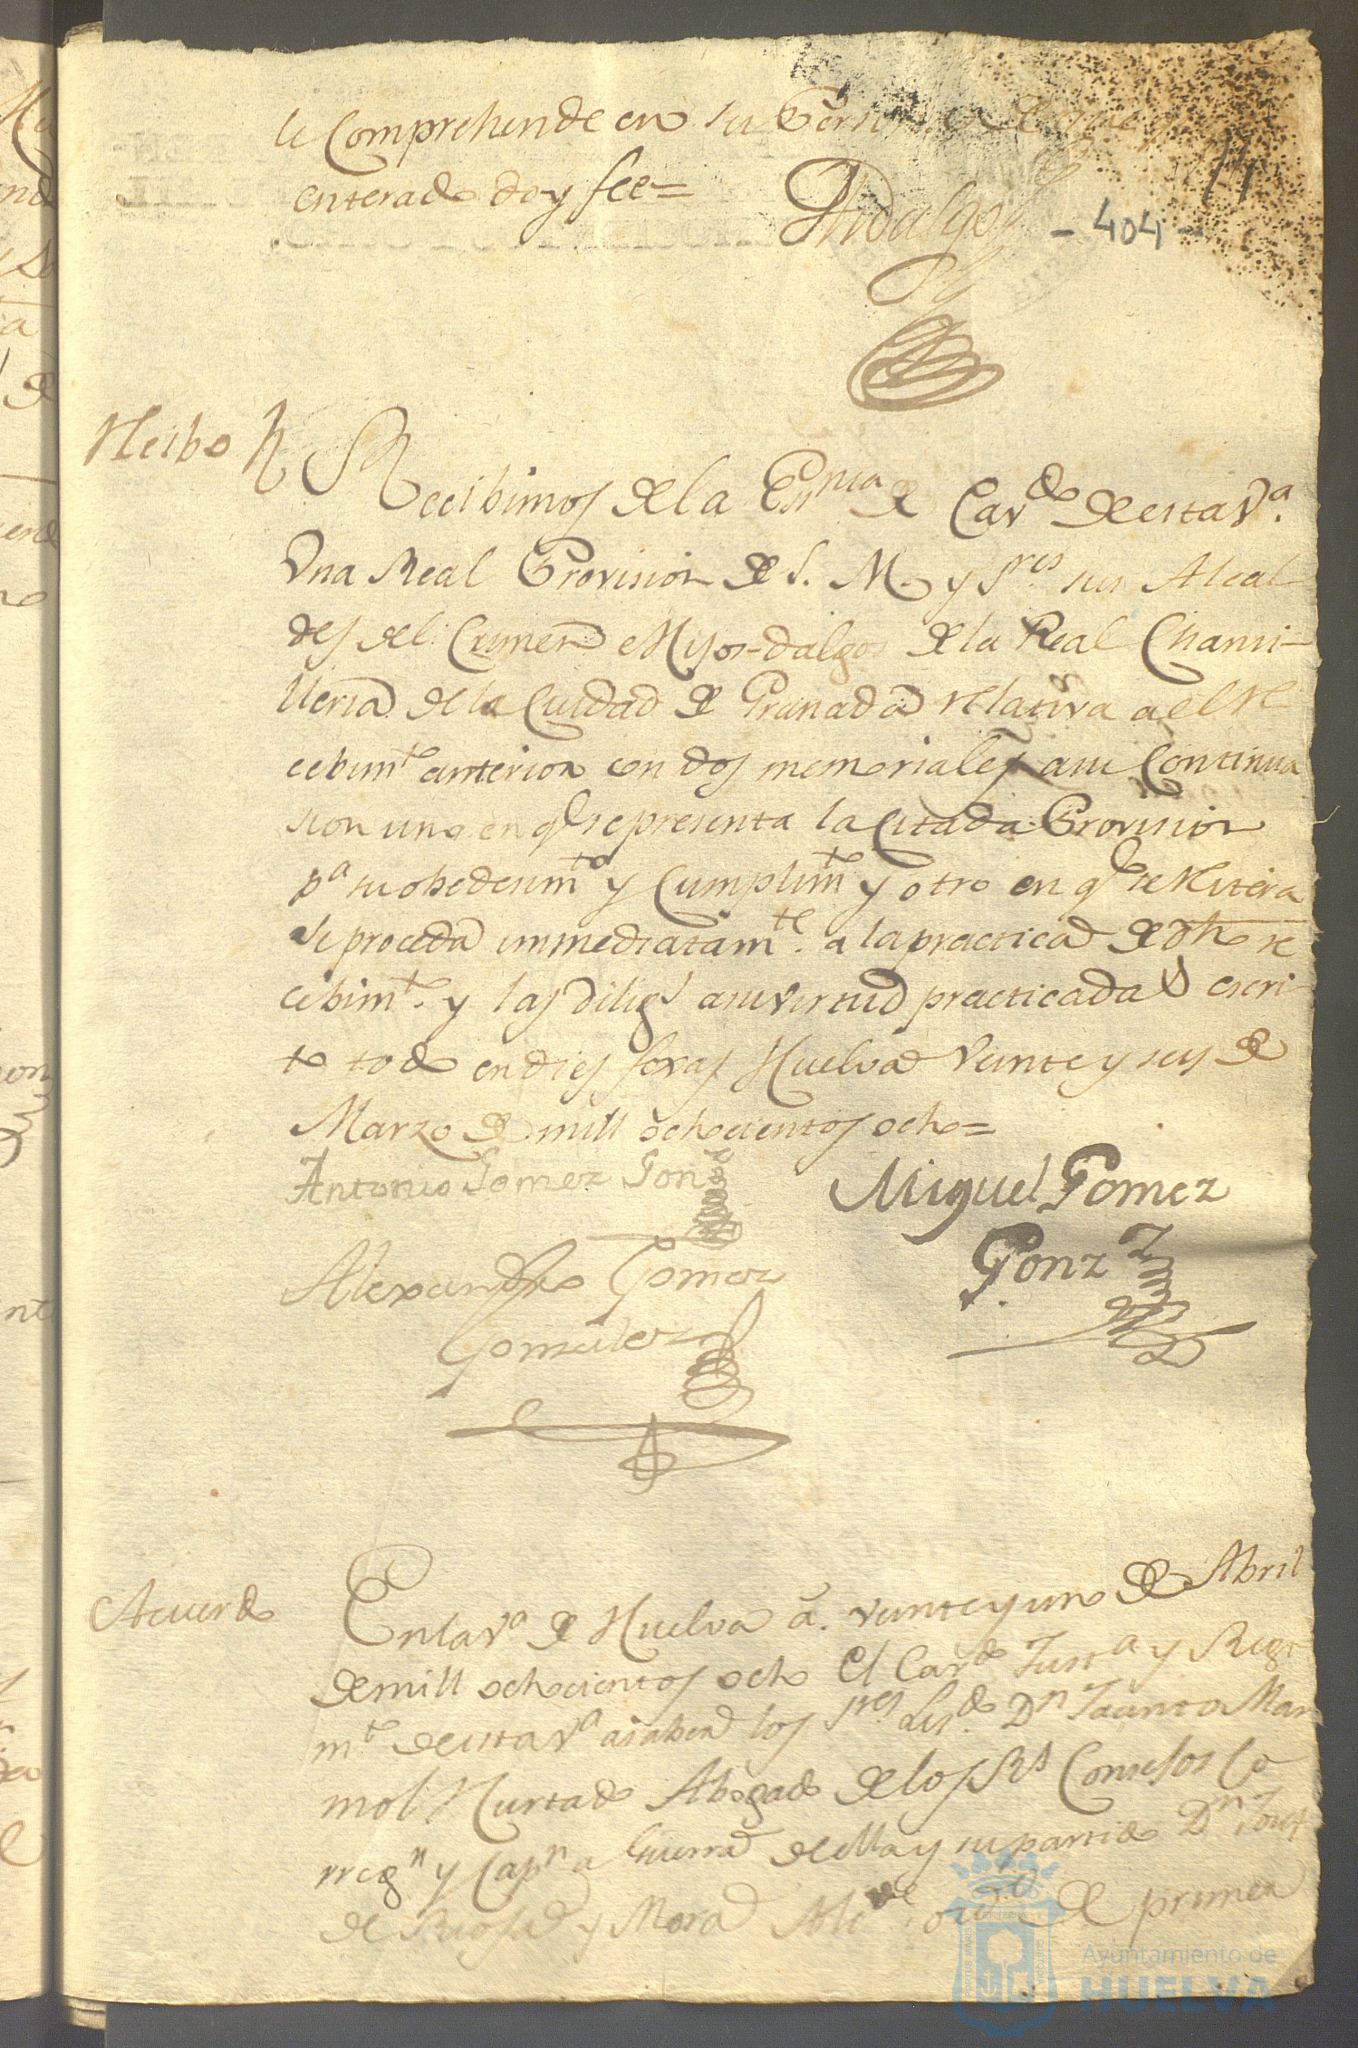 le Comprehende en su Persona de que
enterado doy fee=
Hidalgo
- 404 -
Recibo
Recibimos de la Esnia de Cavdo de esta Va.
Vna Real Provision de S. M. y Sres sus Alcal
des del Crimen e Hijos-dalgos de la Real Chansi-
lleria de la Ciudad de Granada relativa a el re
cebimto anterior con dos memoriales a su Continua
sion uno en qe se presenta la Citada Provision
pa su obedesimto y Cumplimto y otro en qe se reitera
se proceda immediatamte. a la practica de dho re
cibimto. y las diligs a su virtud practicadas escri-
to todo en dies foxas Huelva Veinte y seis de
Marzo de mill ochocientos ocho=
Antonio Gomez Gonz
Miguel Gomez
Gonz
Alexandro Gomez
Gonzalez
Acuerdo
En la va de Huelva a. veinte y uno de Abril
de mill ochocientos ocho El Cavdo Justa y Regi
mto de esta va a saber los sres Lisdo. Dn Jacinto Mar
mol Hurtado Abogado de los Rs Consejos Co
rregn y Capn a Guerra de ella y su partido Dn Josef
de y Mora de primer
Ayuntamiento de
HUELVA